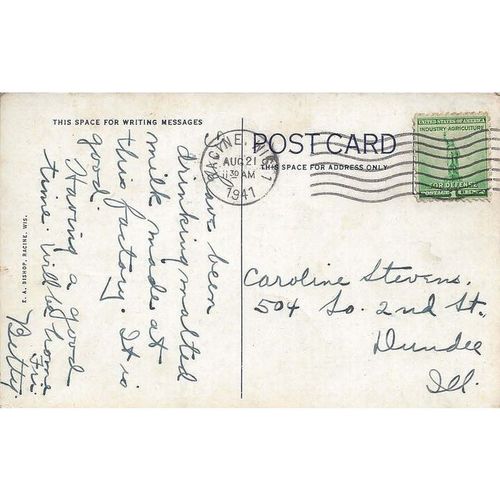 THIS SPACE FOR WRITING MESSAGES
POST CARD
THIS SPACE FOR ADDRESS ONLY
RACINE, WIS.
AUG 21
11 30 AM
1941
UNITED STATES OF AMERICA
INDUSTRY AGRICULTURE
FOR DEFENSE
POSTAGE 1
I have been
drinking malted
milk made at
this factory. It is
good.
Having a good
time. Will be home
Fri.
Betty.
Caroline Stevens.
504 So. 2nd St.
Dundee
Ill.
E. A. BISHOP, RACINE, WIS.